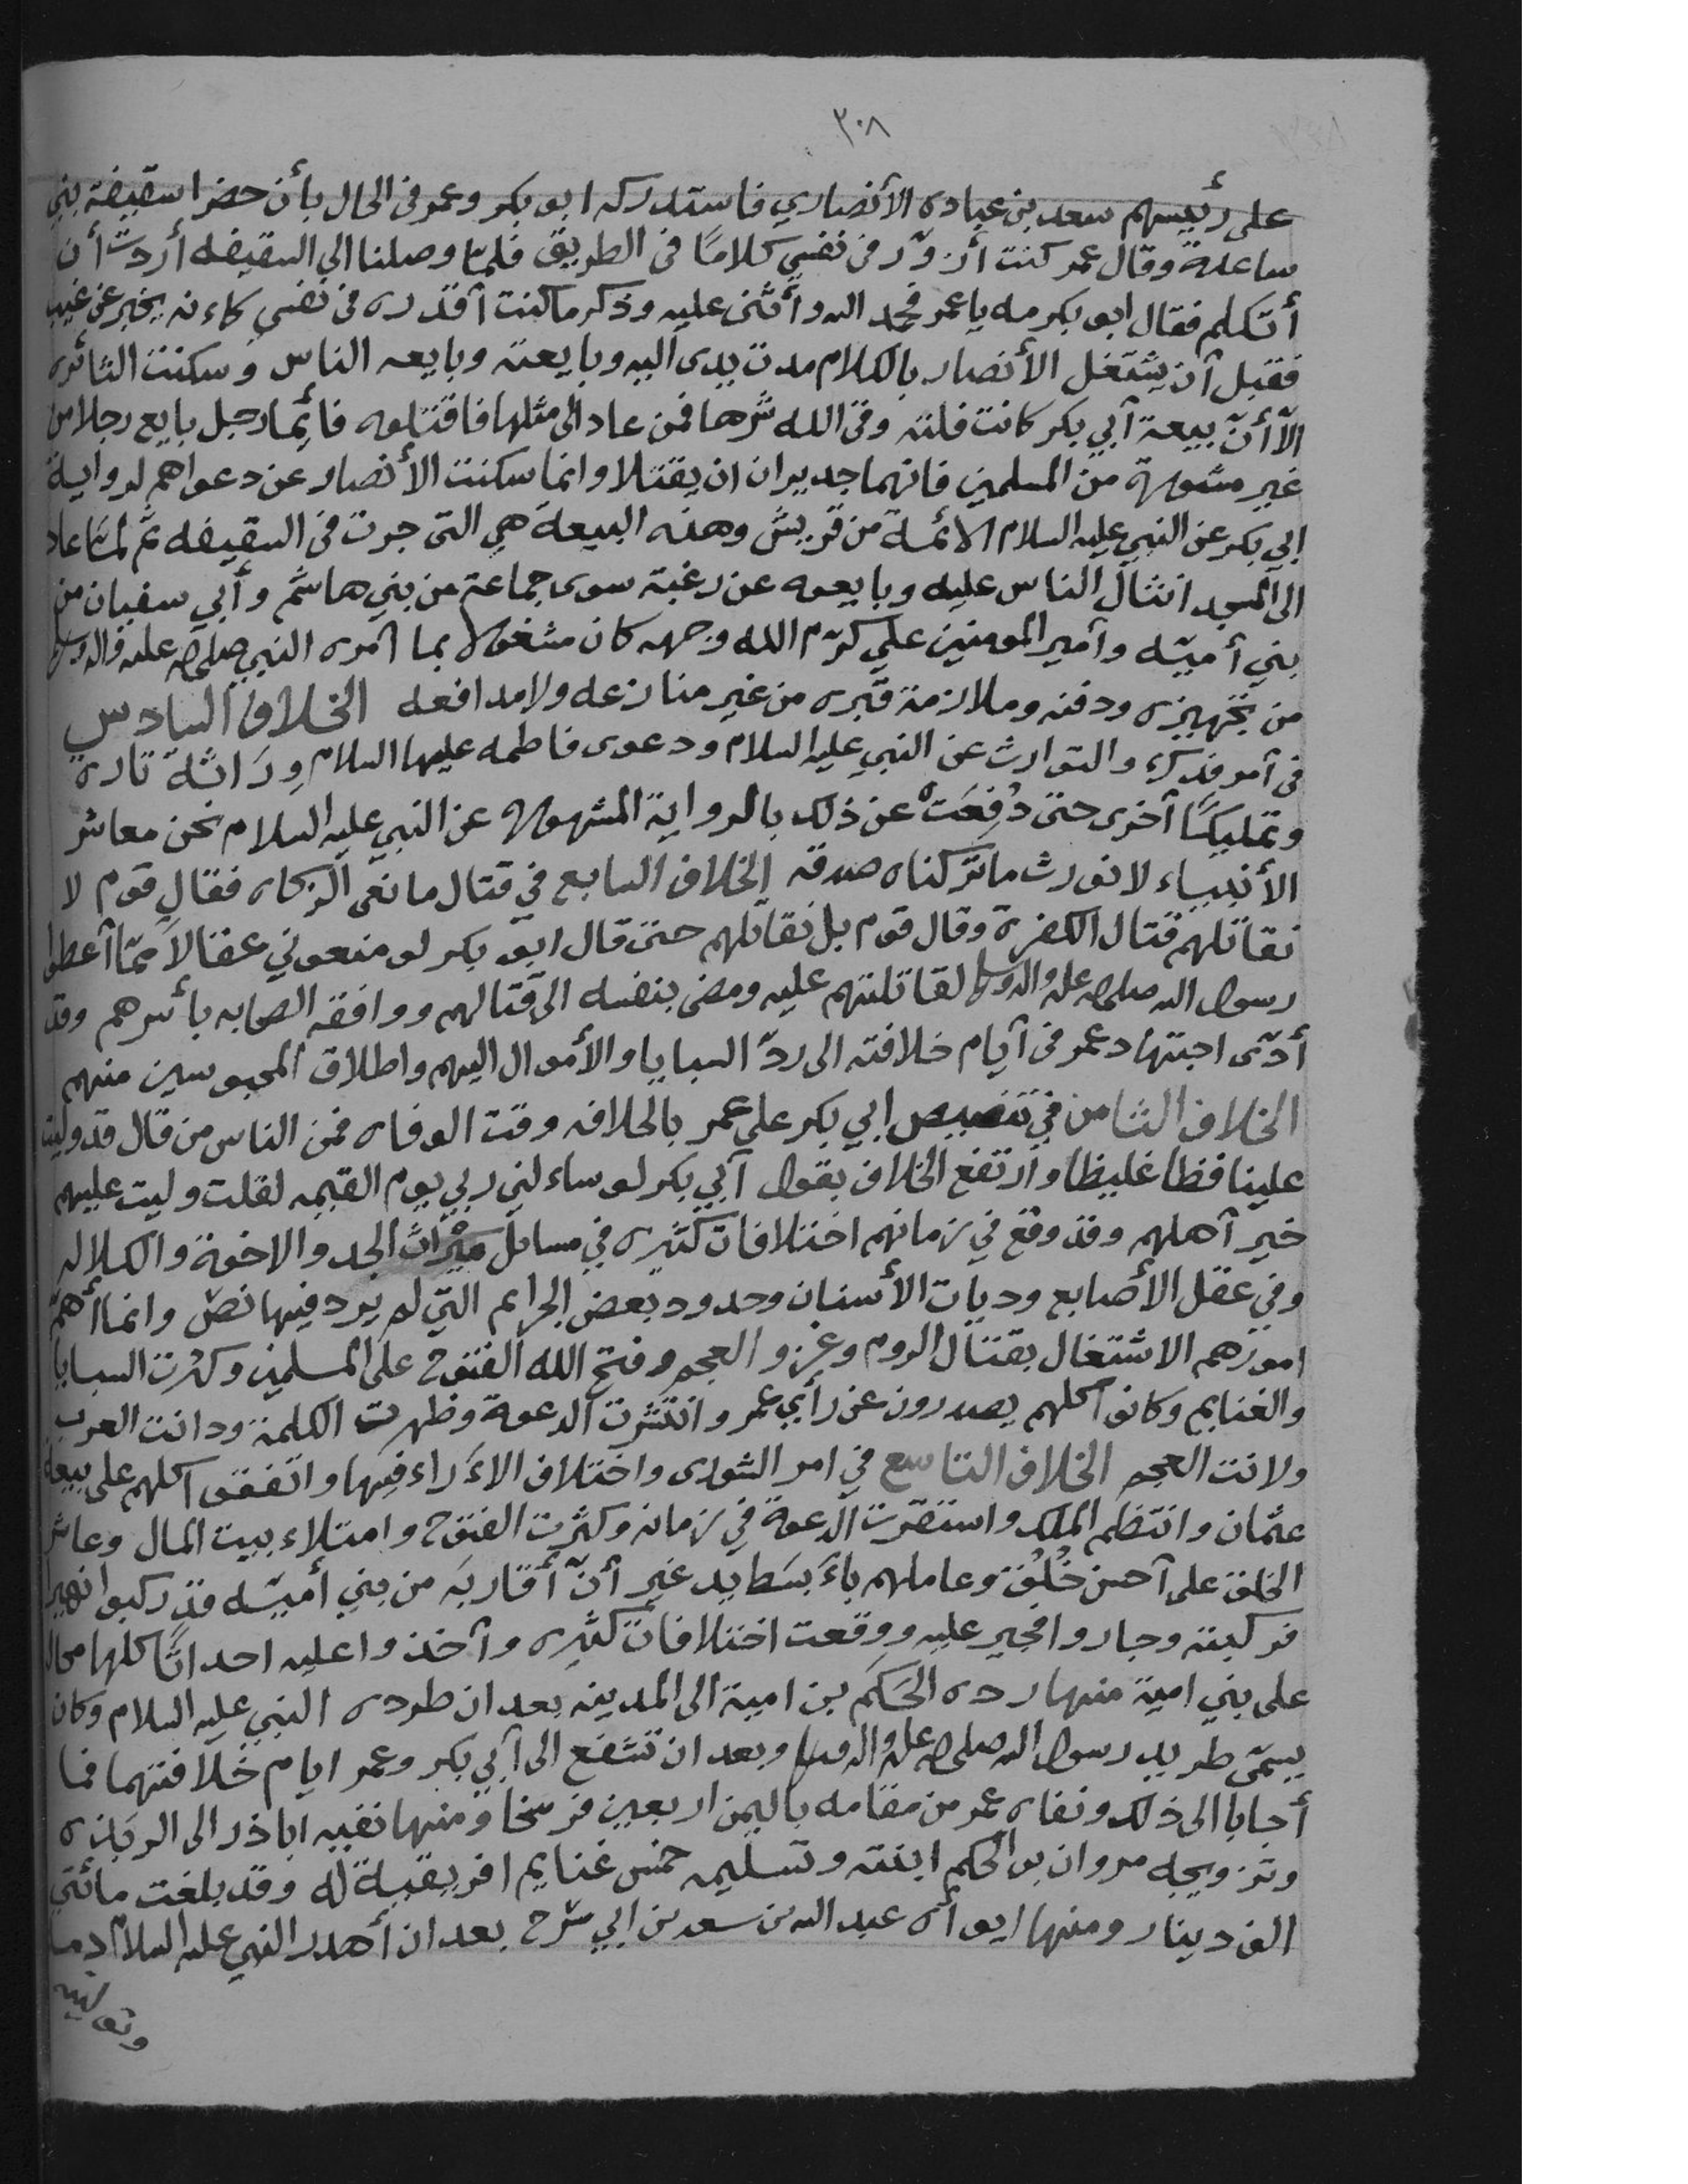 ٣٠٨
على رئيسهم سعد بن عباده الأنصاري فاستدركه ابو بكر وعمر فى الحال بأن حضرا سقيفة بني
ساعدة وقال عمر كنت أزوّر فى نفسي كلامًا فى الطريق فلمّا وصلنا الى السقيفه أردت أن
أتكلم فقال ابو بكر مه يا عمر فحمد الله وأثنى عليه وذكر ما كنت أقدره فى نفسي كاءنه يخبر عن غيب
فقبل أن يشتغل الأنصار بالكلام مدت يدى اليه وبايعته وبايعه الناس وسكنت الثائره
الّا أنّ بيعة أبي بكر كانت فلته وقى الله شرها فمن عاد الى مثلها فاقتلوه فائما رجل بايع رجلا من
غير مشورة من المسلمين فانهما جديران ان يقتلا وانما سكنت الأنصار عن دعواهم لرواية
ابي بكر عن النبي عليه السلام الائمة من قريش وهذه البيعة هي التى جرت فى السقيفه ثم لمّا عاد
الى المسجد انثال الناس عليه وبايعوه عن رغبة سوى جماعة من بني هاشم وأبي سفيان من
بني أميّه وأمير المومنين علي كرّم الله وجهه كان مشغولا بما أمره النبي صلى الله عليه واله وسلم
من تجهيزه ودفنه وملازمة قبره من غير منازعه ولا مدافعه الخلاف السادس
فى أمر فدك والتوارث عن النبي عليه السلام ودعوى فاطمه عليها السلام وِرَاثة تاره
وتمليكًا أخرى حتى دُفِعَت عن ذلك بالرواية المشهورة عن النبي عليه السلام نحن معاشر
الأنبياء لا نورث ما تركناه صدقه الخلاف السابع في قتال مانعى الزكاه فقال قوم لا
نقاتلهم قتال الكفرة وقال قوم بل نقاتلهم حتى قال ابو بكر لو منعوني عقالا ممّا أعطوا
رسول الله صلى الله عليه واله وسلم لقاتلتهم عليه ومضى بنفسه الى قتالهم ووافقه الصحابه بأسرهم وقد
أدّى اجتهاد عمر فى أيام خلافته الى ردّ السبايا والأموال اليهم واطلاق المحبوسين منهم
الخلاف الثامن في تنصيص ابي بكر على عمر بالخلافه وقت الوفاه فمن الناس من قال قد وليت
علينا فظا غليظا وارتفع الخلاف بقول أبي بكر لو ساءلني ربي يوم القيمه لقلت وليت عليهم
خير أهلهم وقد وقع في زمانهم اختلافات كثيره في مسائل ميراث الجد والاخوة والكلاله
وفي عقل الأصابع وديات الأسنان وحدود بعض الجرايم التي لم يرد فيها نص وانما أهمّ
امورهم الاشتغال بقتال الروم وغزو العجم وفتح الله الفتوح على المسلمين وكثرت السبايا
والغنايم وكانوا كلهم يصدرون عن رأي عمر وانتشرت الدعوة وظهرت الكلمة ودانت العرب
ولانت العجم الخلاف التاسع في امر الشورى واختلاف الاءَراء فيها واتفقوا كلهم على بيعة
عثمان وانتظم الملك واستقرت الدعوة في زمانه وكثرت الفتوح وامتلاء بيت المال وعاش
الخلق على أحسن خُلُق وعاملهم باءَبسَط يد غير أنّ أقاربَه من بني أميّه قد ركبوا نهابر
فركبته وجاروا فجير عليه ووقعت اختلافات كثيره وأخذوا عليه احداثًا كلها محالة
على بني امية منها رده الحَكَم بن امية الى المدينه بعد ان طرده النبي عليه السلام وكان
يسمّى طريد رسول الله صلى الله عليه واله وسلم وبعد ان تشفع الى أبي بكر وعمر ايام خلافتهما فما
أجابا الى ذلك ونفاه عمر من مقامه باليمن اربعين فرسخا ومنها نفيه اباذر الى الربذه
وتزويجه مروان بن الحكم ابنته وتسليمه خمس غنايم افريقية له وقد بلغت مائتي
الف دينار ومنها ايواءه عبد الله بن سعد بن ابي سرح بعد ان أهدر النبي عليه السلام دمه
وتوليته